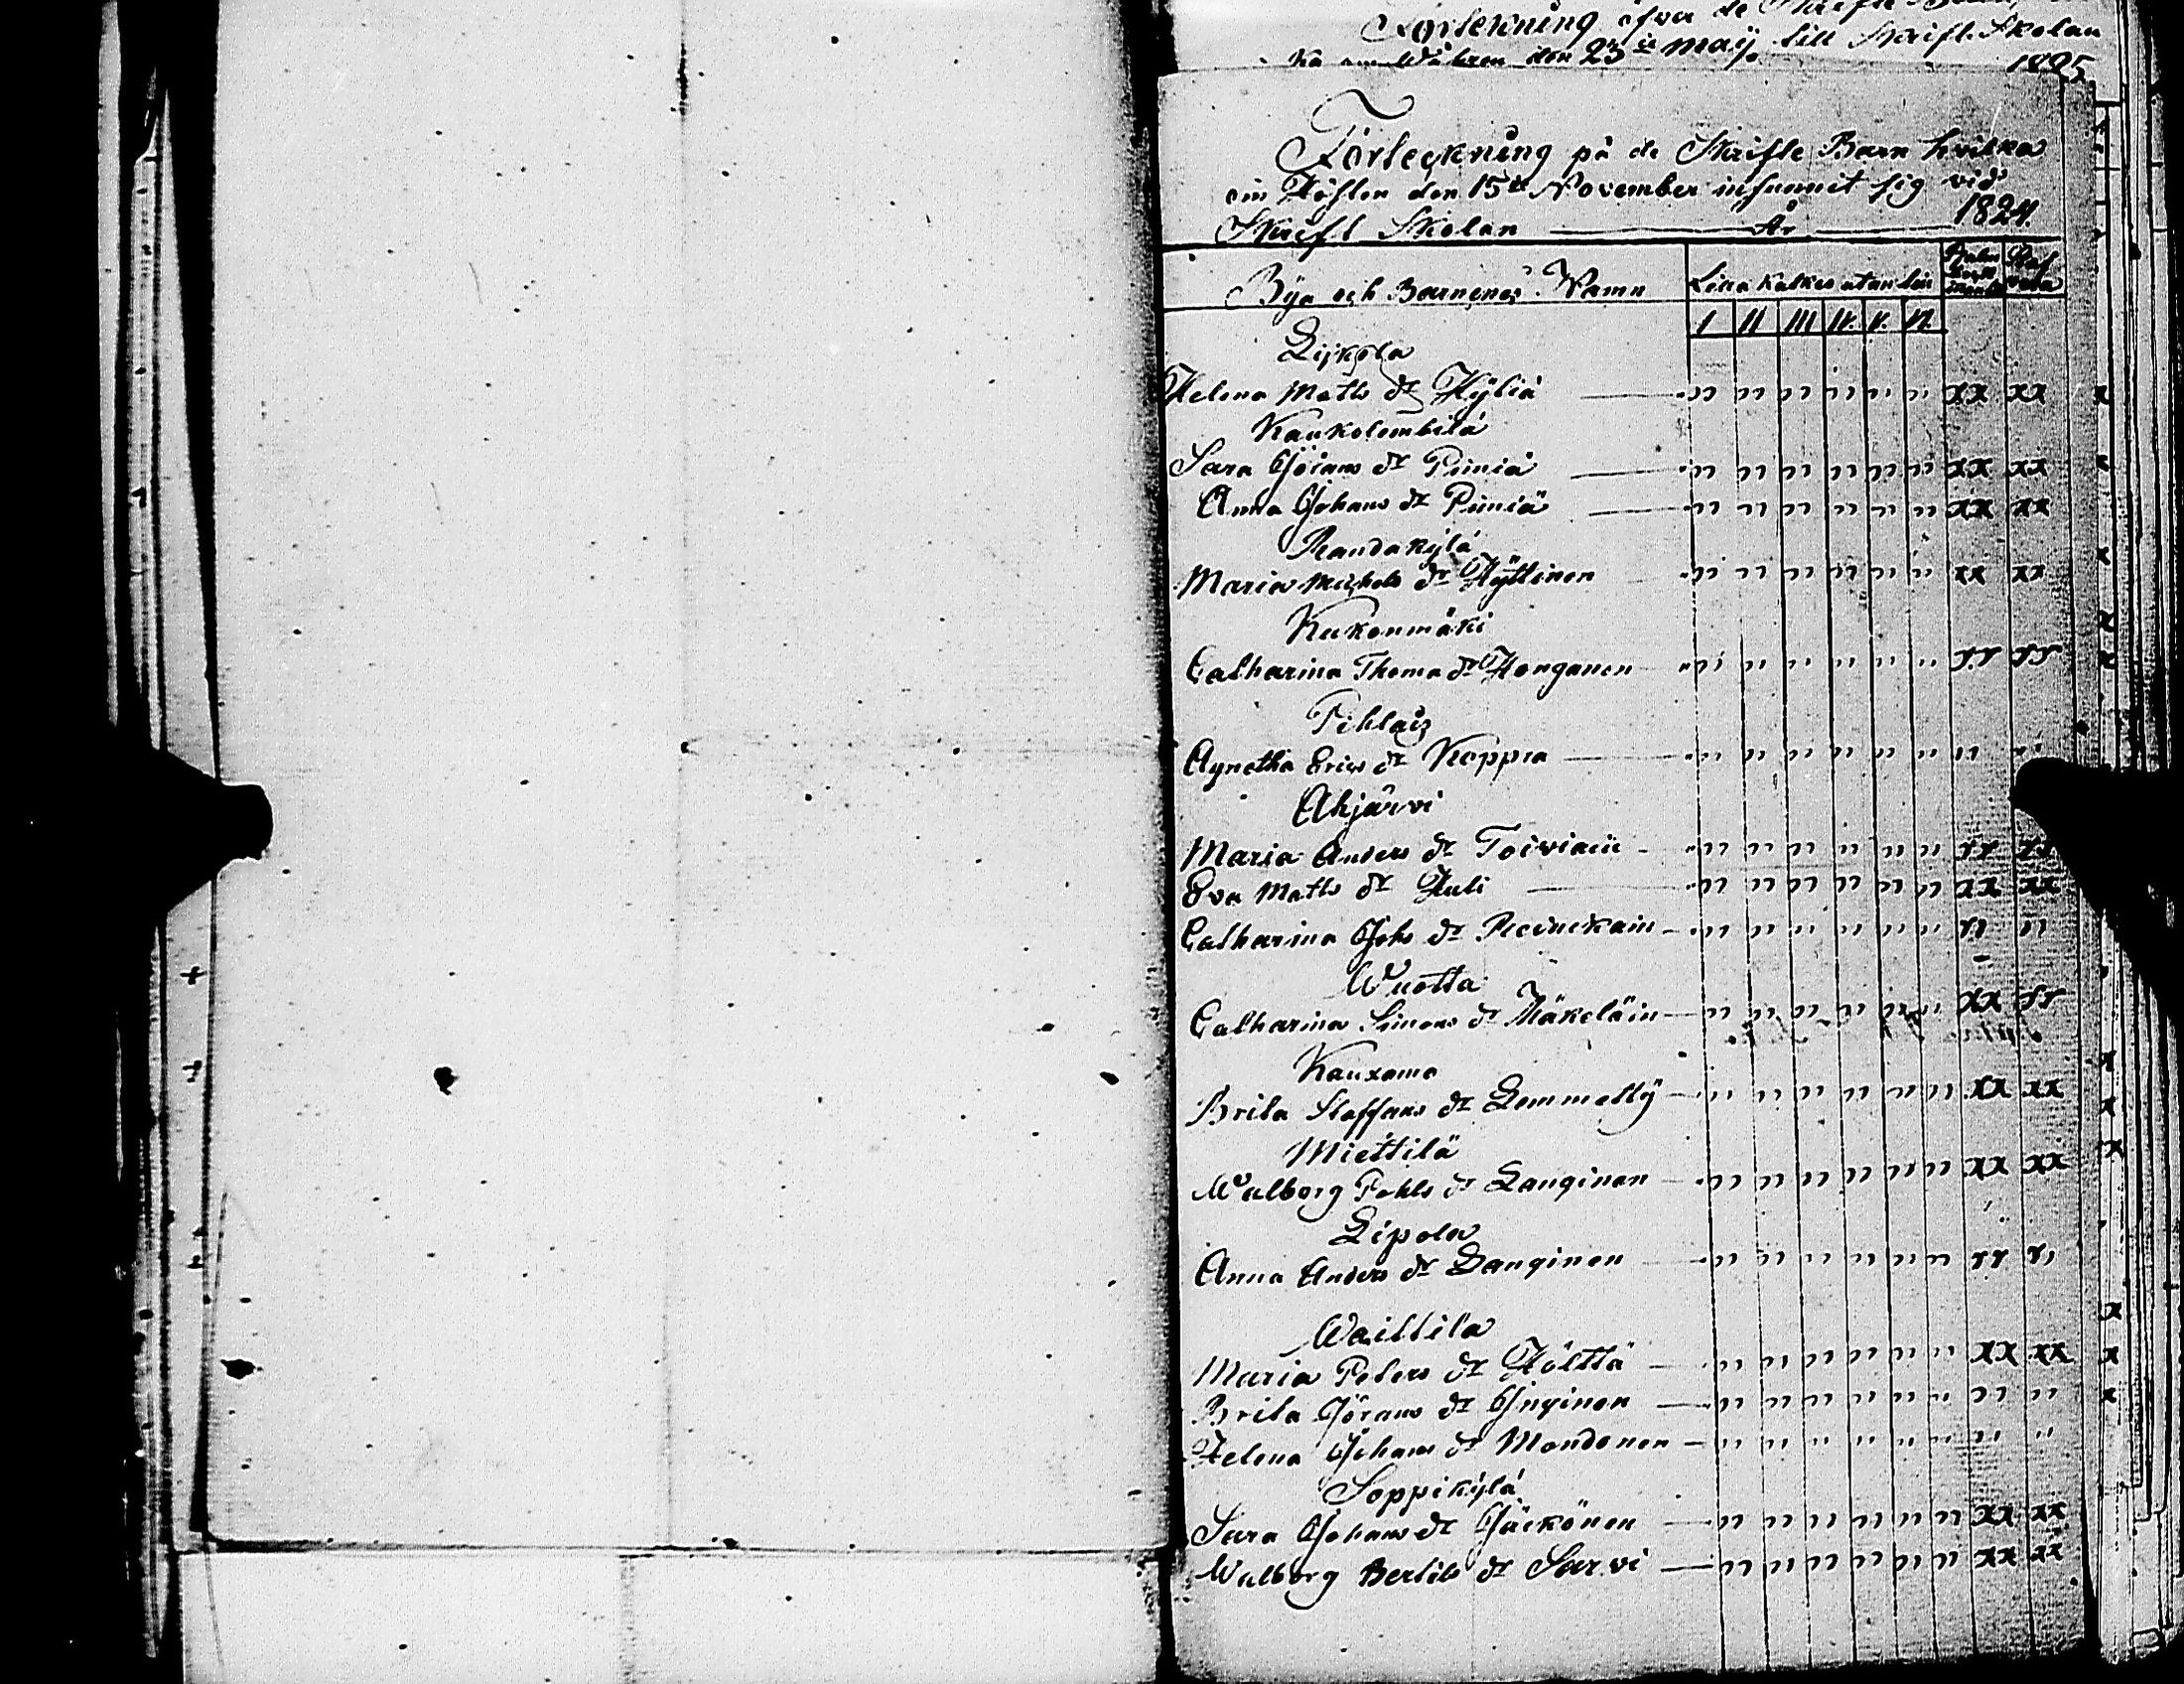 Förtekning öfver de Skrifte
den 23 Maij till Skrift Skolan
1825
Förteckning på de Skrifte Barn hvilka
om Hösten den 15de November infunnit sig vid
Skrift Skolan År 1824.
Bya och Barnenes Namn
Lilla Katkes utan
Psalm
I II III IV. V. VI.
Lijkola
Helena Matts dr Hÿliä " " " " " " xx xx
Kaukolembilä
Sara Görans dr Piiniä " " " " " " xx xx
Anna Johans dr Piiniä " " " " " " xx xx
Randakylä
Maria Michels dr Hÿttinen " " " " " " xx xx
Kukonmäki
Catharina Thoma dr Honganen " " " " " "
Pihlais
Agnetha Erics dr Koppra " " " " " " " "
Ahjärvi
Maria Anders dr Toiviain " " " " " "
Eva Matts dr Huli " " " " " " xx xx
Catharina Johs dr " " " " " "
Wuotta
Catharina Simons dr Mäkeläin " " " " " " xx
Kauxamo
Brita Staffans dr Lemmetty " " " " " " xx xx
Miettilä
Walborg Pohls dr Langinen " " " " " " xx xx
Lipola
Anna Anders dr Langinen " " " " " "
Waittila
Maria Peters dr Hölttä " " " " " " xx xx
Brita Görans dr Inginen " " " " " " " "
Helena Johans dr Mondonen " " " " " " " "
Soppikylä
Sara Johans dr Jäskönen " " " " " " xx xx
Walborg Bertils dr Sarvi " " " " " " xx xx